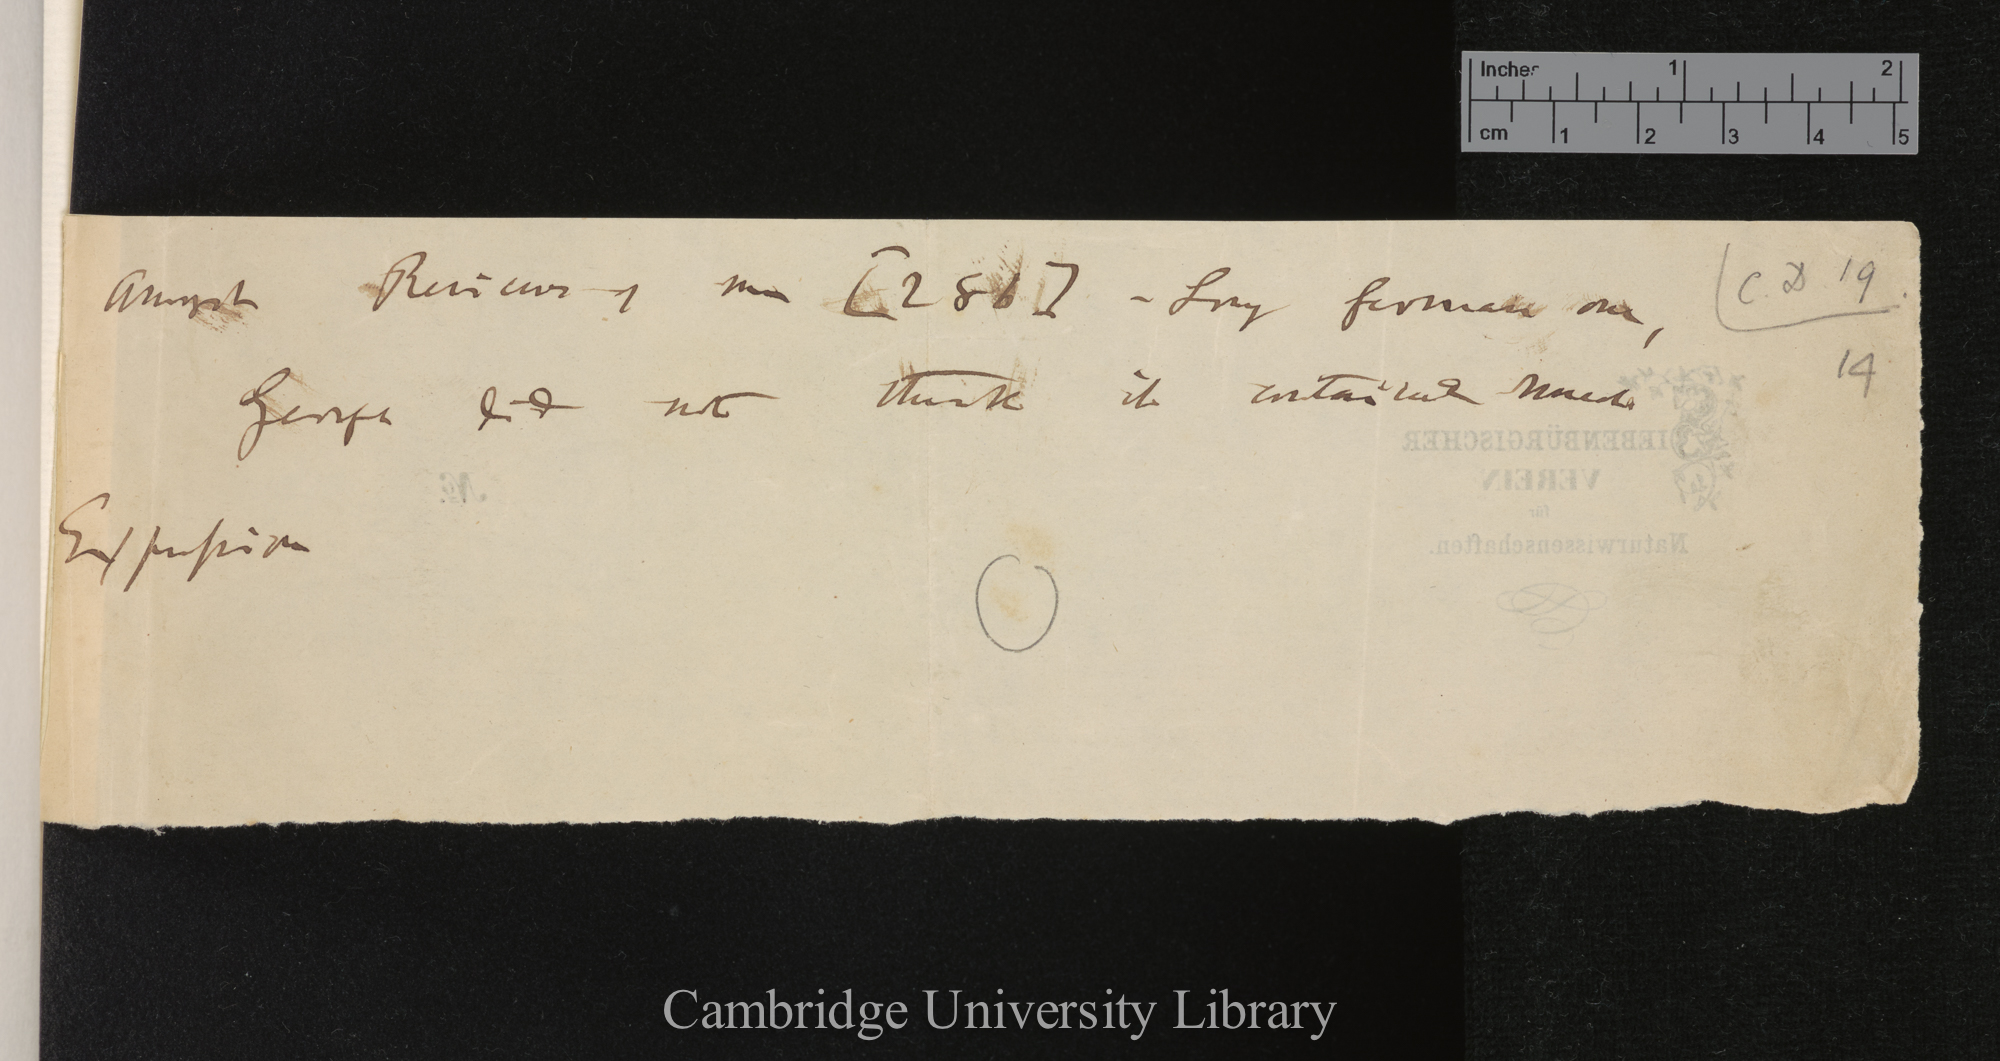 Inches 1 2
cm 1 2 3 4 5
Amongst Reviews of me [286] – Long German one,
C. D. 19.
14
George did not think it contained much
SIEBENBÜRGISCHER
VEREIN
für
Naturwissenschaften.
No.
Expression
Cambridge University Library